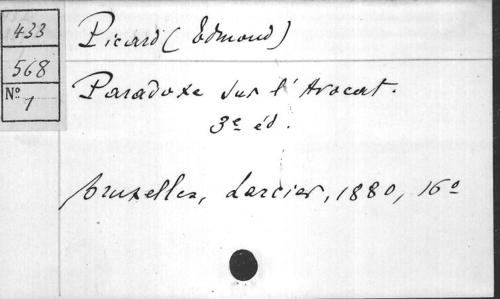 433
568
Nº 1
Picard (Edmond)
Paradoxe sur l'Avocat.
3e éd.
bruxelles, Larcier, 1880, 16º